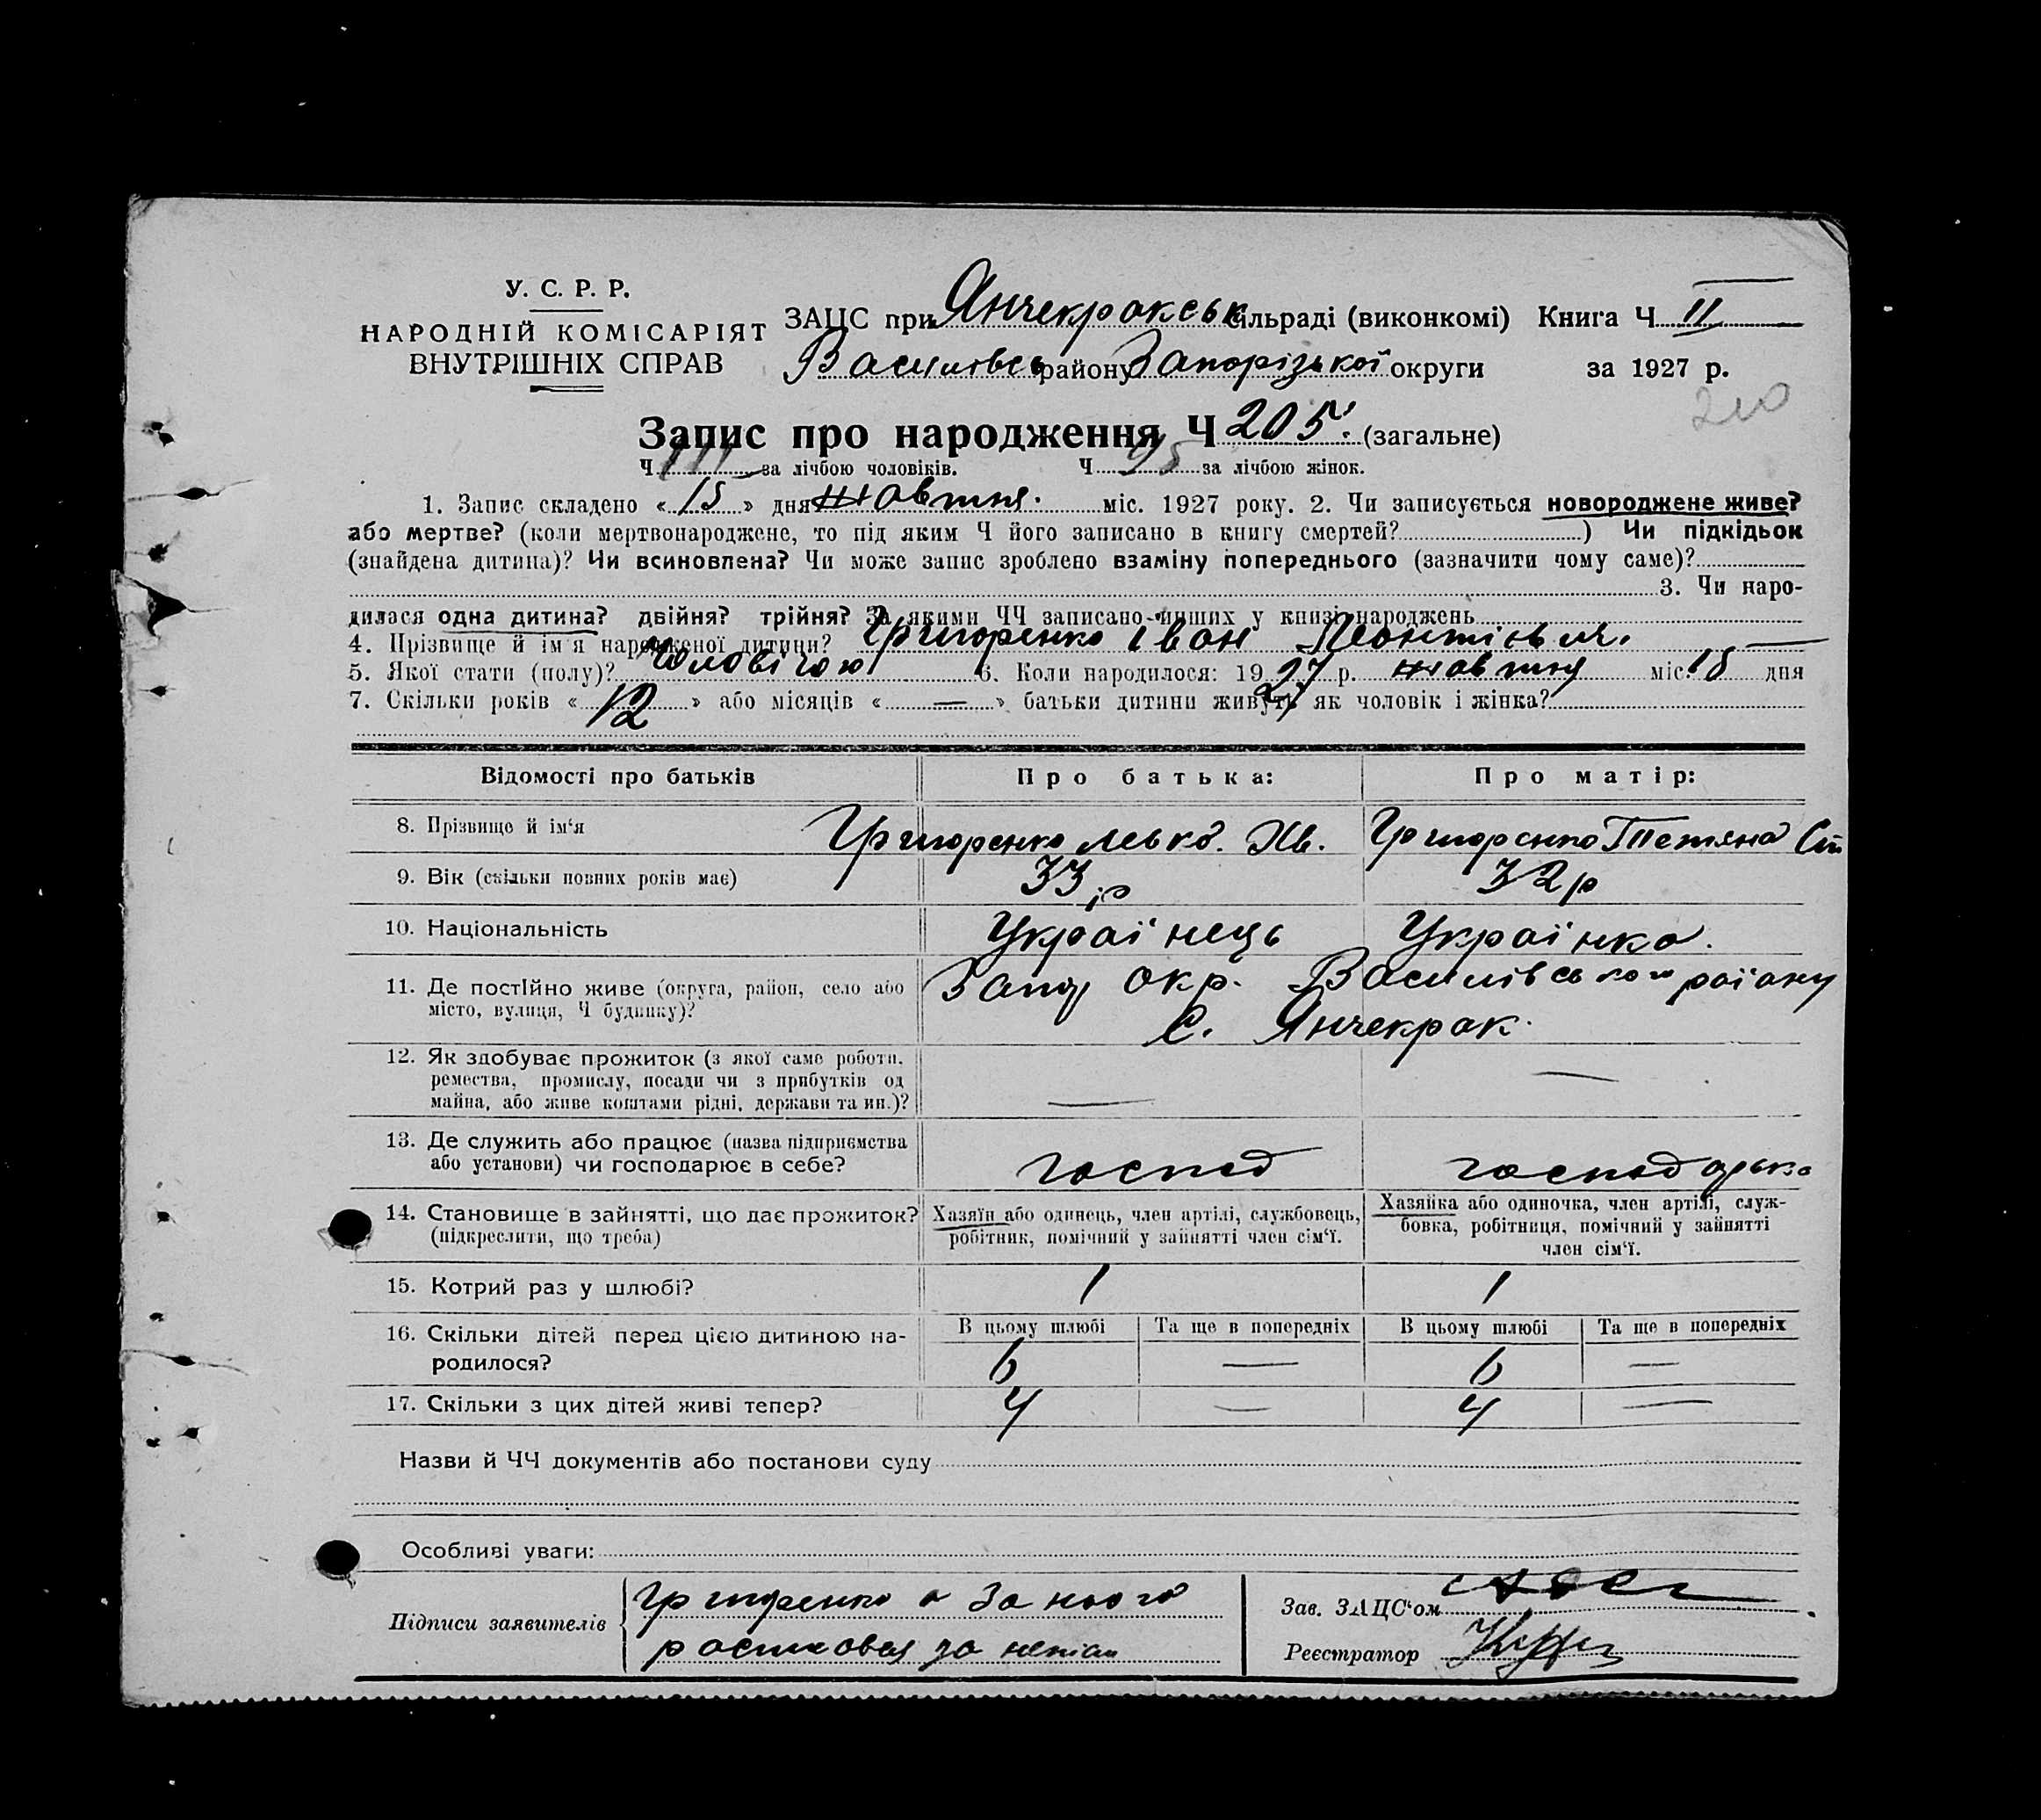 У. С. Р. Р.
НАРОДНІЙ КОМІСАРІЯТ
ВНУТРІШНІХ СПРАВ
ЗАЦС при Янчекракськ сільраді (виконкомі) Книга Ч. II
Василівсь району Запорізької округи за 1927 р.
210
Запис про народження Ч 205. (загальне)
Ч. 111 за лічбою чоловіків. Ч. 95 за лічбою жінок.
1. Запис складено « 15 » дня жовтня. міс. 1927 року. 2. Чи записується новороджене живе?
або мертве? (коли мертвонароджене, то під яким Ч його записано в книгу смертей? ) Чи підкідьок
(знайдена дитина)? Чи всиновлена? Чи може запис зроблено взаміну попереднього (зазначити чому саме)?
3. Чи наро-
дилася одна дитина? двійня? трійня? За якими ЧЧ записано инших у книзі народжень
4. Прізвище й ім'я народженої дитини? Григоренко Іван Леонтіьвич.
5. Якої стати (полу)? Чоловічою 6. Коли народилося: 1927 р. жовтня міс. 15 дня
7. Скільки років « 12 » або місяців « — » батьки дитини живуть як чоловік і жінка?
Відомості про батьків Про батька: Про матір:
8. Прізвище й ім'я Григоренко Левко. Хв. Григоренко Тетяна Ст
9. Вік (скільки повних років має) 33 р 32 р
10. Національність Украінець Украінка.
11. Де постійно живе (округа, район, село або Запор окр. Василівського раіону
місто, вулиця, Ч будинку)? С. Янчекрак.
12. Як здобуває прожиток (з якої саме роботи,
ремества, промислу, посади чи з прибутків од
майна, або живе коштами рідні, держави та ин.)? — —
13. Де служить або працює (назва підприємства
або установи) чи господарює в себе? господ господарька
14. Становище в зайнятті, що дає прожиток? Хазяїн або одинець, член артілі, службовець, Хазяйка або одиночка, член артілі, служ-
(підкреслити, що треба) робітник, помічний у зайнятті член сім'ї. бовка, робітниця, помічний у зайнятті
член сім'ї.
15. Котрий раз у шлюбі? 1 1
16. Скільки дітей перед цією дитиною на- В цьому шлюбі Та ще в попередніх В цьому шлюбі Та ще в попередніх
родилося? 6 — 6 —
17. Скільки з цих дітей живі тепер? 4 — 4 —
Назви й ЧЧ документів або постанови суду
Особливі уваги:
Підписи заявителів Григоренко а за нього
Зав. ЗАЦС'ом
Реєстратор